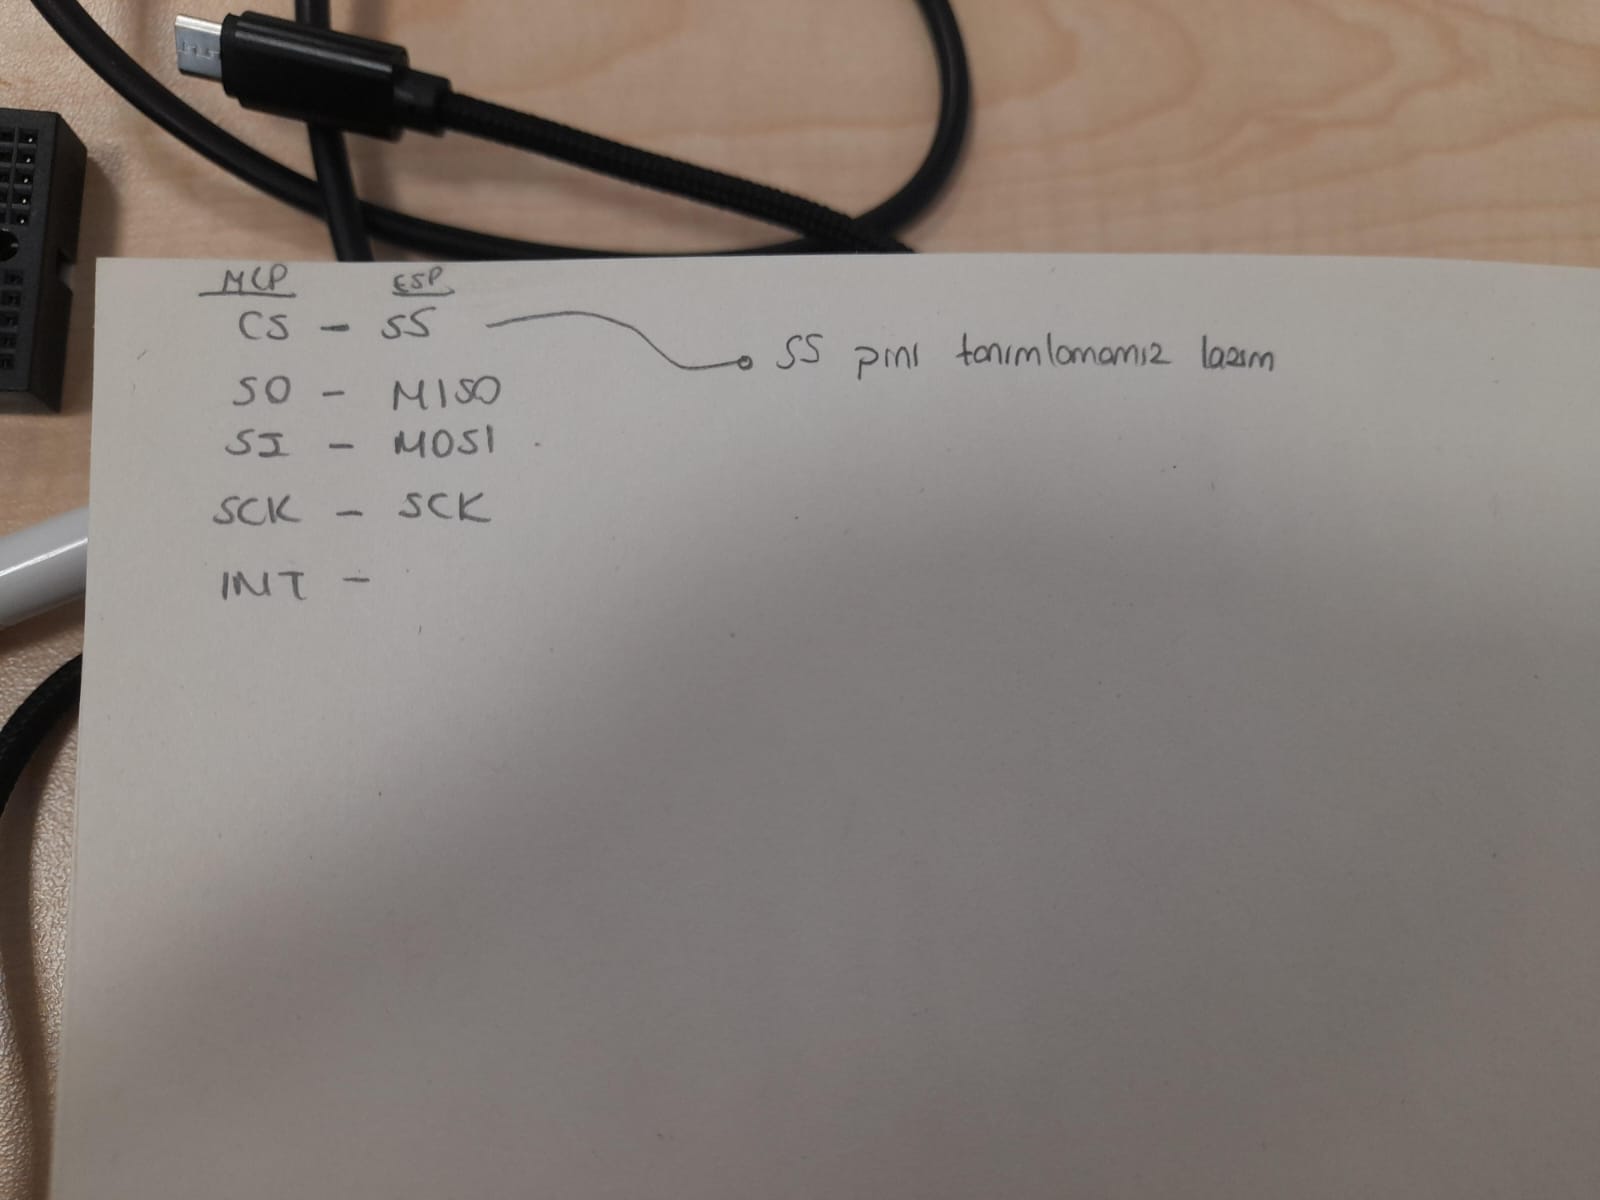 MCP ESP
CS - SS
SS pini tanımlamamız lazım
SO - MISO
SI - MOSI
SCK - SCK
INT -